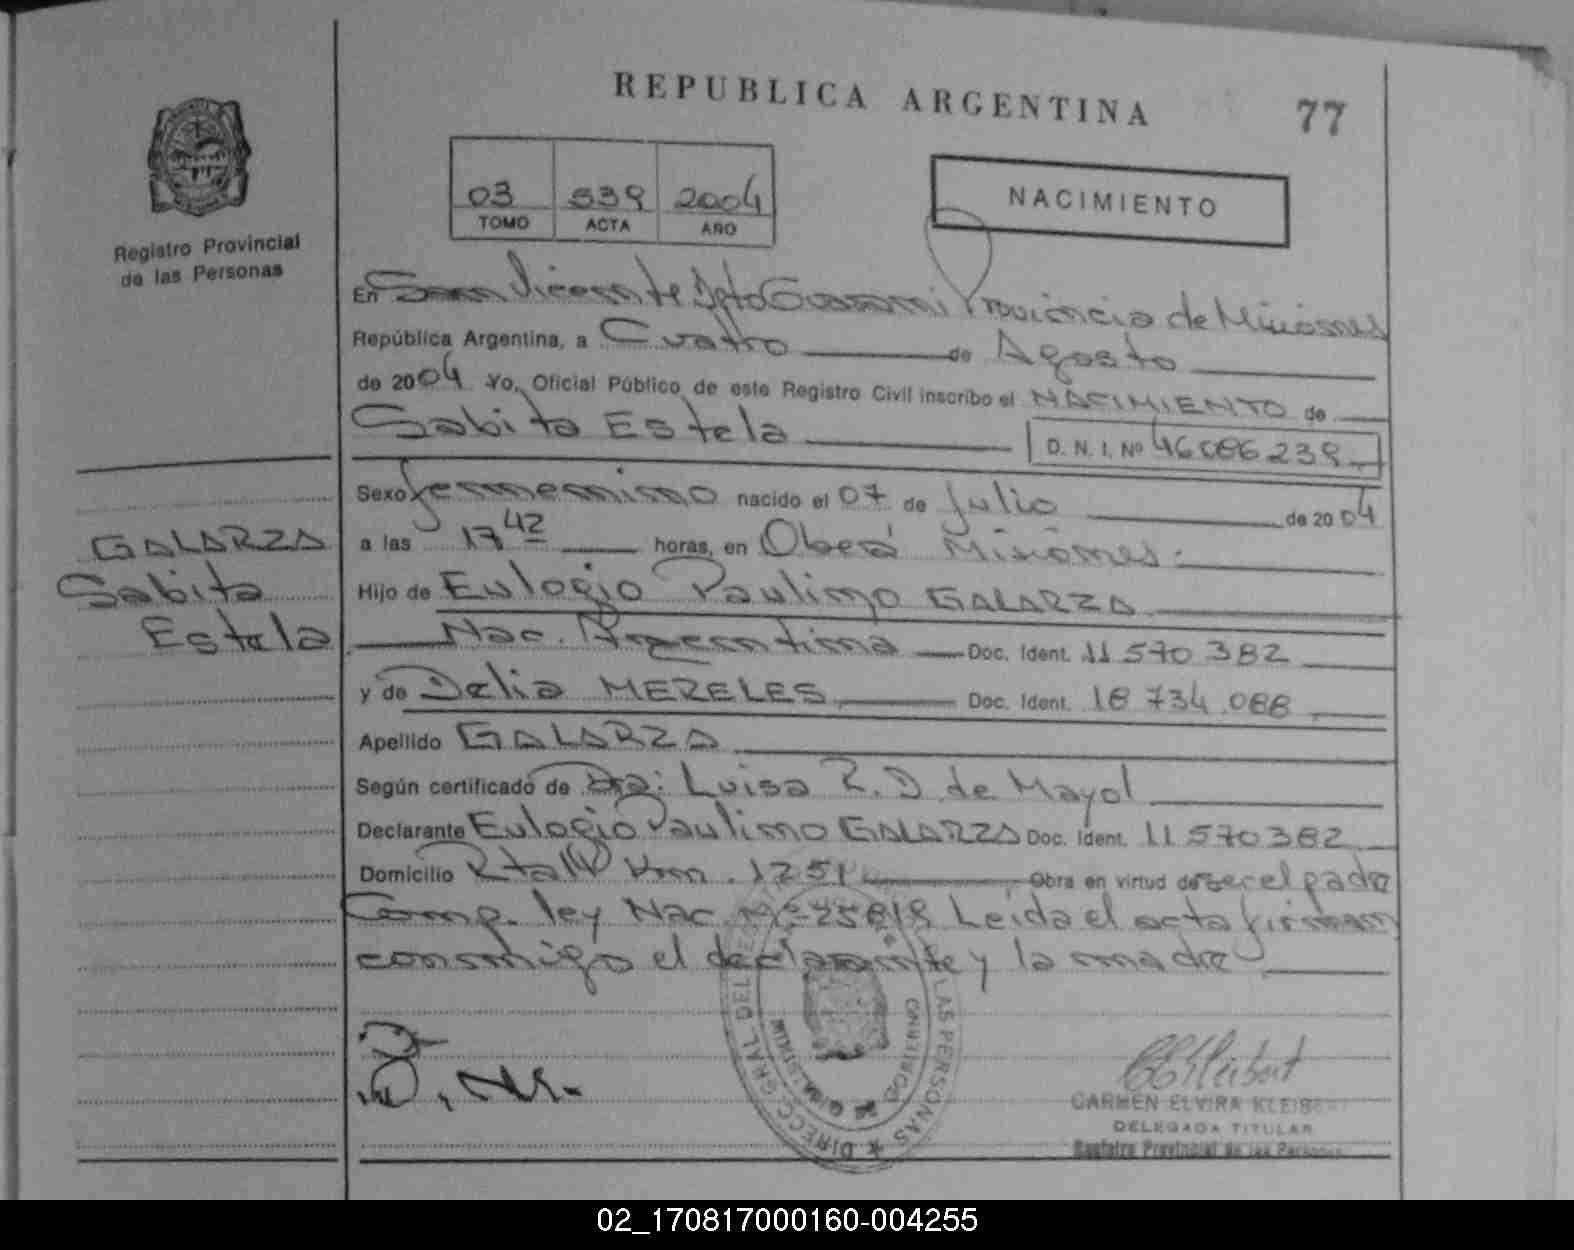 REPUBLICA ARGENTINA
77
03 539 2004
TOMO ACTA AÑO
NACIMIENTO
Registro Provincial
de las Personas
En San Vicente Dpto Guaraní Provincia de Misiones
República Argentina, a Cuatro de Agosto
de 2004 Yo, Oficial Público de este Registro Civil inscribo el NACIMIENTO de
Sabita Estela D. N. I. Nº
Sexo femenino nacido el 07 de Julio de 2004
a las 17 42 horas, en Oberá Misiones.
Hijo de Eulogio Paulino GALARZA
Nac. Argentina Doc. Ident. 11 570 382
y de Delia MERELES Doc. Ident. 18 734 088
Apellido GALARZA
Según certificado de Dra: Luisa R. D. de Mayol
Declarante Eulogio Paulino GALARZA Doc. Ident. 11 570382
Domicilio Rta Km. Obra en virtud de ser el padre
Comp. ley Nac Nº 25818 Leida el acta firman
conmigo el declarante y la madre
GALARZA
Sabita
Estela
D. M.
DIRECC. GRAL. DEL LAS PERSONAS
MINISTERIO DE GOBIERNO
CARMEN ELVIRA KLEIBERT
DELEGADA TITULAR
Registro Provincial de las Personas
02_170817000160-004255